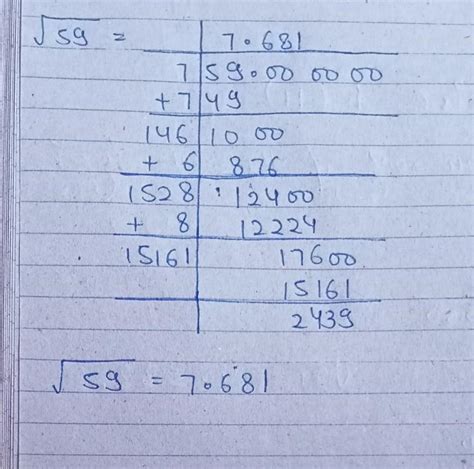 √59 = 7.681
7 59.00 00 00
+7 49
146 1000
+ 6 876
1528 12400
+ 8 12224
15161 17600
15161
2439
√59 = 7.681